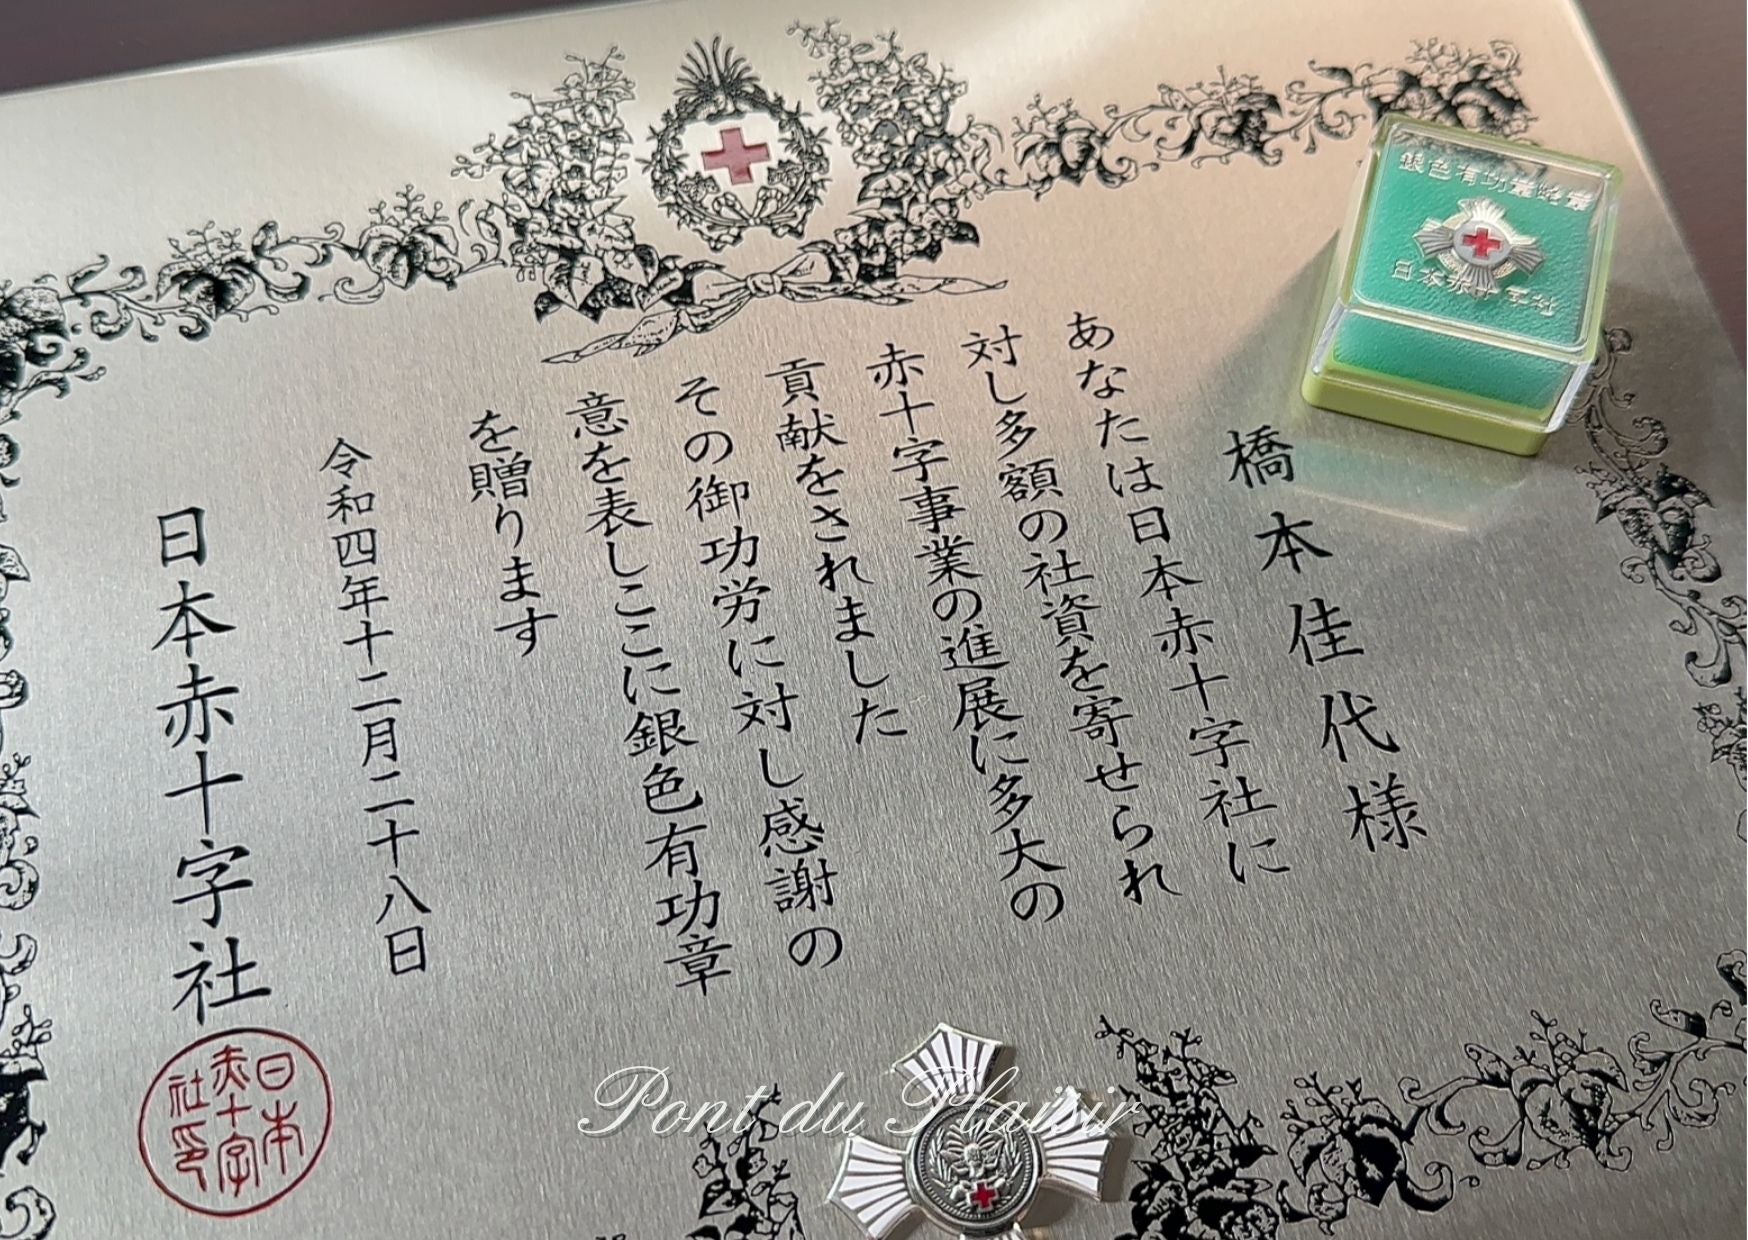 橋本佳代様
あなたは日本赤十字社に
対し多額の社資を寄せられ
赤十字事業の進展に多大の
貢献をされました
その御功労に対し感謝の
意を表しここに銀色有功章
を贈ります
令和四年十二月二十八日
日本赤十字社
日本
赤十字
社印
銀色有功章略章
日本赤十字社
Pont du Plaisir